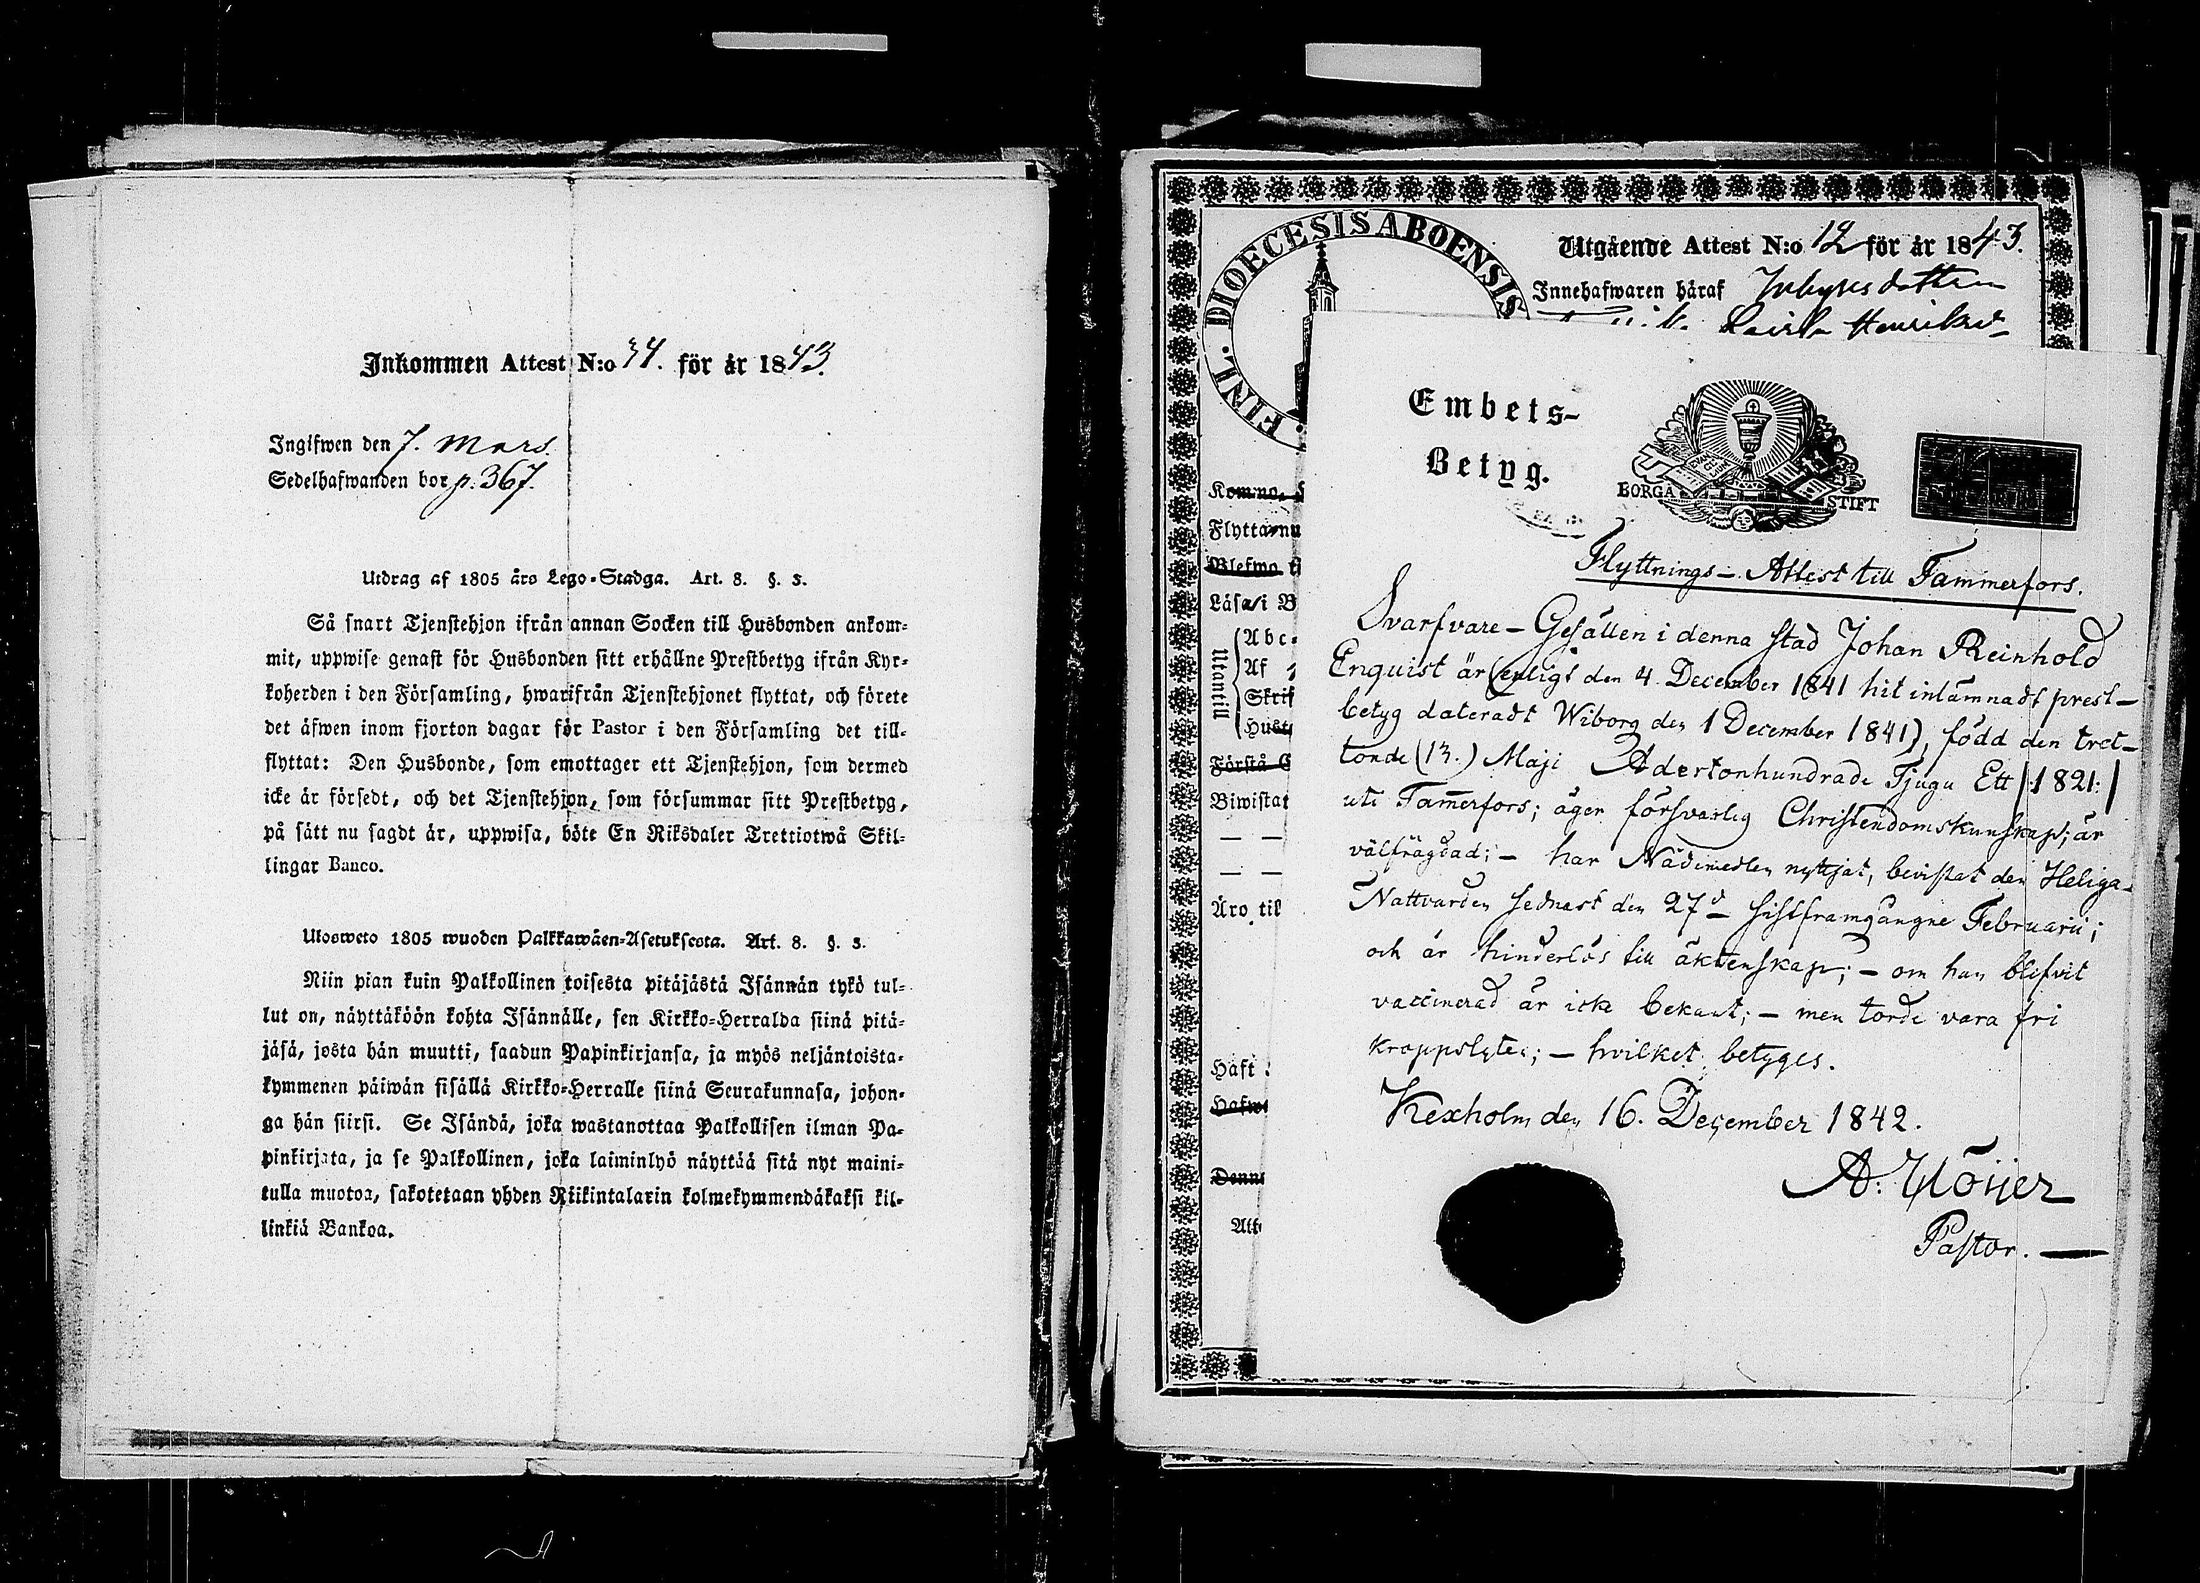 Inkommen Attest N:o 34. för år 1843.
Ingifwen den 7. Mars.
Sedelhafwanden bor p. 367.
Utdrag af 1805 års Lego-Stadga. Art. 8. §. 3.
Så snart Tjenstehjon ifrån annan Socken till Husbonden ankom-
mit, uppwise genast för Husbonden sitt erhållne Prestbetyg ifrån Kyr-
koherden i den Församling, hwarifrån Tjenstehjonet flyttat, och förete
det äfwen inom fjorton dagar för Pastor i den Församling det till-
flyttat: Den Husbonde, som emottager ett Tjenstehjon, som dermed
icke är försedt, och det Tjenstehjon, som försummar sitt Prestbetyg,
på sätt nu sagdt är, uppwisa, böte En Riksdaler Trettiotwå Skil-
lingar Banco.
Ulosweto 1805 wuoden Palkkawäen-Asetuksesta. Art. 8. §. 3.
Niin pian kuin Palkollinen toisesta pitäjästä Isännän tykö tul-
lut on, näyttäköön kohta Isännälle, sen Kirkko-Herralda siinä pitä-
jäsä, josta hän muutti, saadun Papinkirjansa, ja myös neljäntoista-
kymmenen päiwän sisällä Kirkko-Herralle siinä Seurakunnasa, johon-
ga hän siirsi. Se Isändä, joka wastanottaa Palkollisen ilman Pa-
pinkirjata, ja se Palkollinen, joka laiminlyö näyttää sitä nyt maini-
tulla muotoa, sakotetaan yhden Riikintalarin kolmekymmendäkaksi kil-
linkiä Bankoa.
FINL. DIOECESIS ABOENSIS
Utgående Attest N:o 12 för år 1843.
Innehafwaren häraf Inhysesdottren
Henriksd
Flyttar nu
Blefwo
Läsa i B
Utantill
Abc-
Af
Skrif
Hust
Förstå C
Biwistat
Äro til
Häft
Hafwe
Denn
Att
Embets-
Betyg.
BORGÅ STIFT
Flyttnings-Attest till Tammerfors.
Svarfvare-Gesällen i denna stad Johan Reinhold
Enquist är (enligt den 4. December 1841 hit inlämnadt prest-
betyg dateradt Wiborg den 1 December 1841), född den tret-
tonde (13.) Maji Adertonhundrade Tjugu Ett |:1821:|
uti Tam̄erfors; äger försvarlig Christendomskunskap; är
välfrägdad; – har Nådemedlen nyttjat, bevistat den Heliga
Nattvarden sednast den 27d sistframgångne Februarii;
och är hinderlös till äktenskap; – om han blifvit
vaccinerad är icke bekant; – men torde vara fri
kroppslyten; – hvilket betyges.
Kexholm den 16. December 1842.
A. Höijer
Pastor.